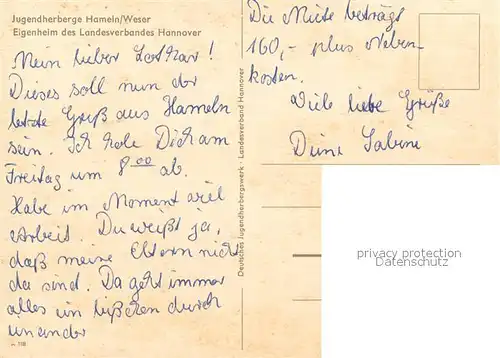 Jugendherberge Hameln/Weser
Eigenheim des Landesverbandes Hannover
Mein lieber Lothar!
Dieses soll nun der
letzte Gruß aus Hameln
sein. Ich hole Dich am
Freitag um 8⁰⁰ ab.
Habe im Moment viel
Arbeit. Du weißt ja,
daß meine Eltern nicht
da sind. Da geht immer
alles ein bißchen durch
einander
Die Miete beträgt
160,- plus Neben-
kosten.
Viele liebe Grüße
Deine Sabine
Deutsches Jugendherbergswerk - Landesverband Hannover
privacy protection
Datenschutz
118